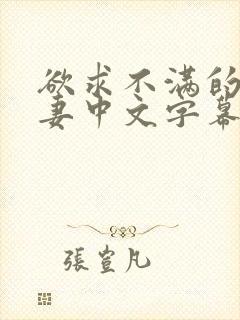 欲求不满的
妻中文字幕
張萱凡